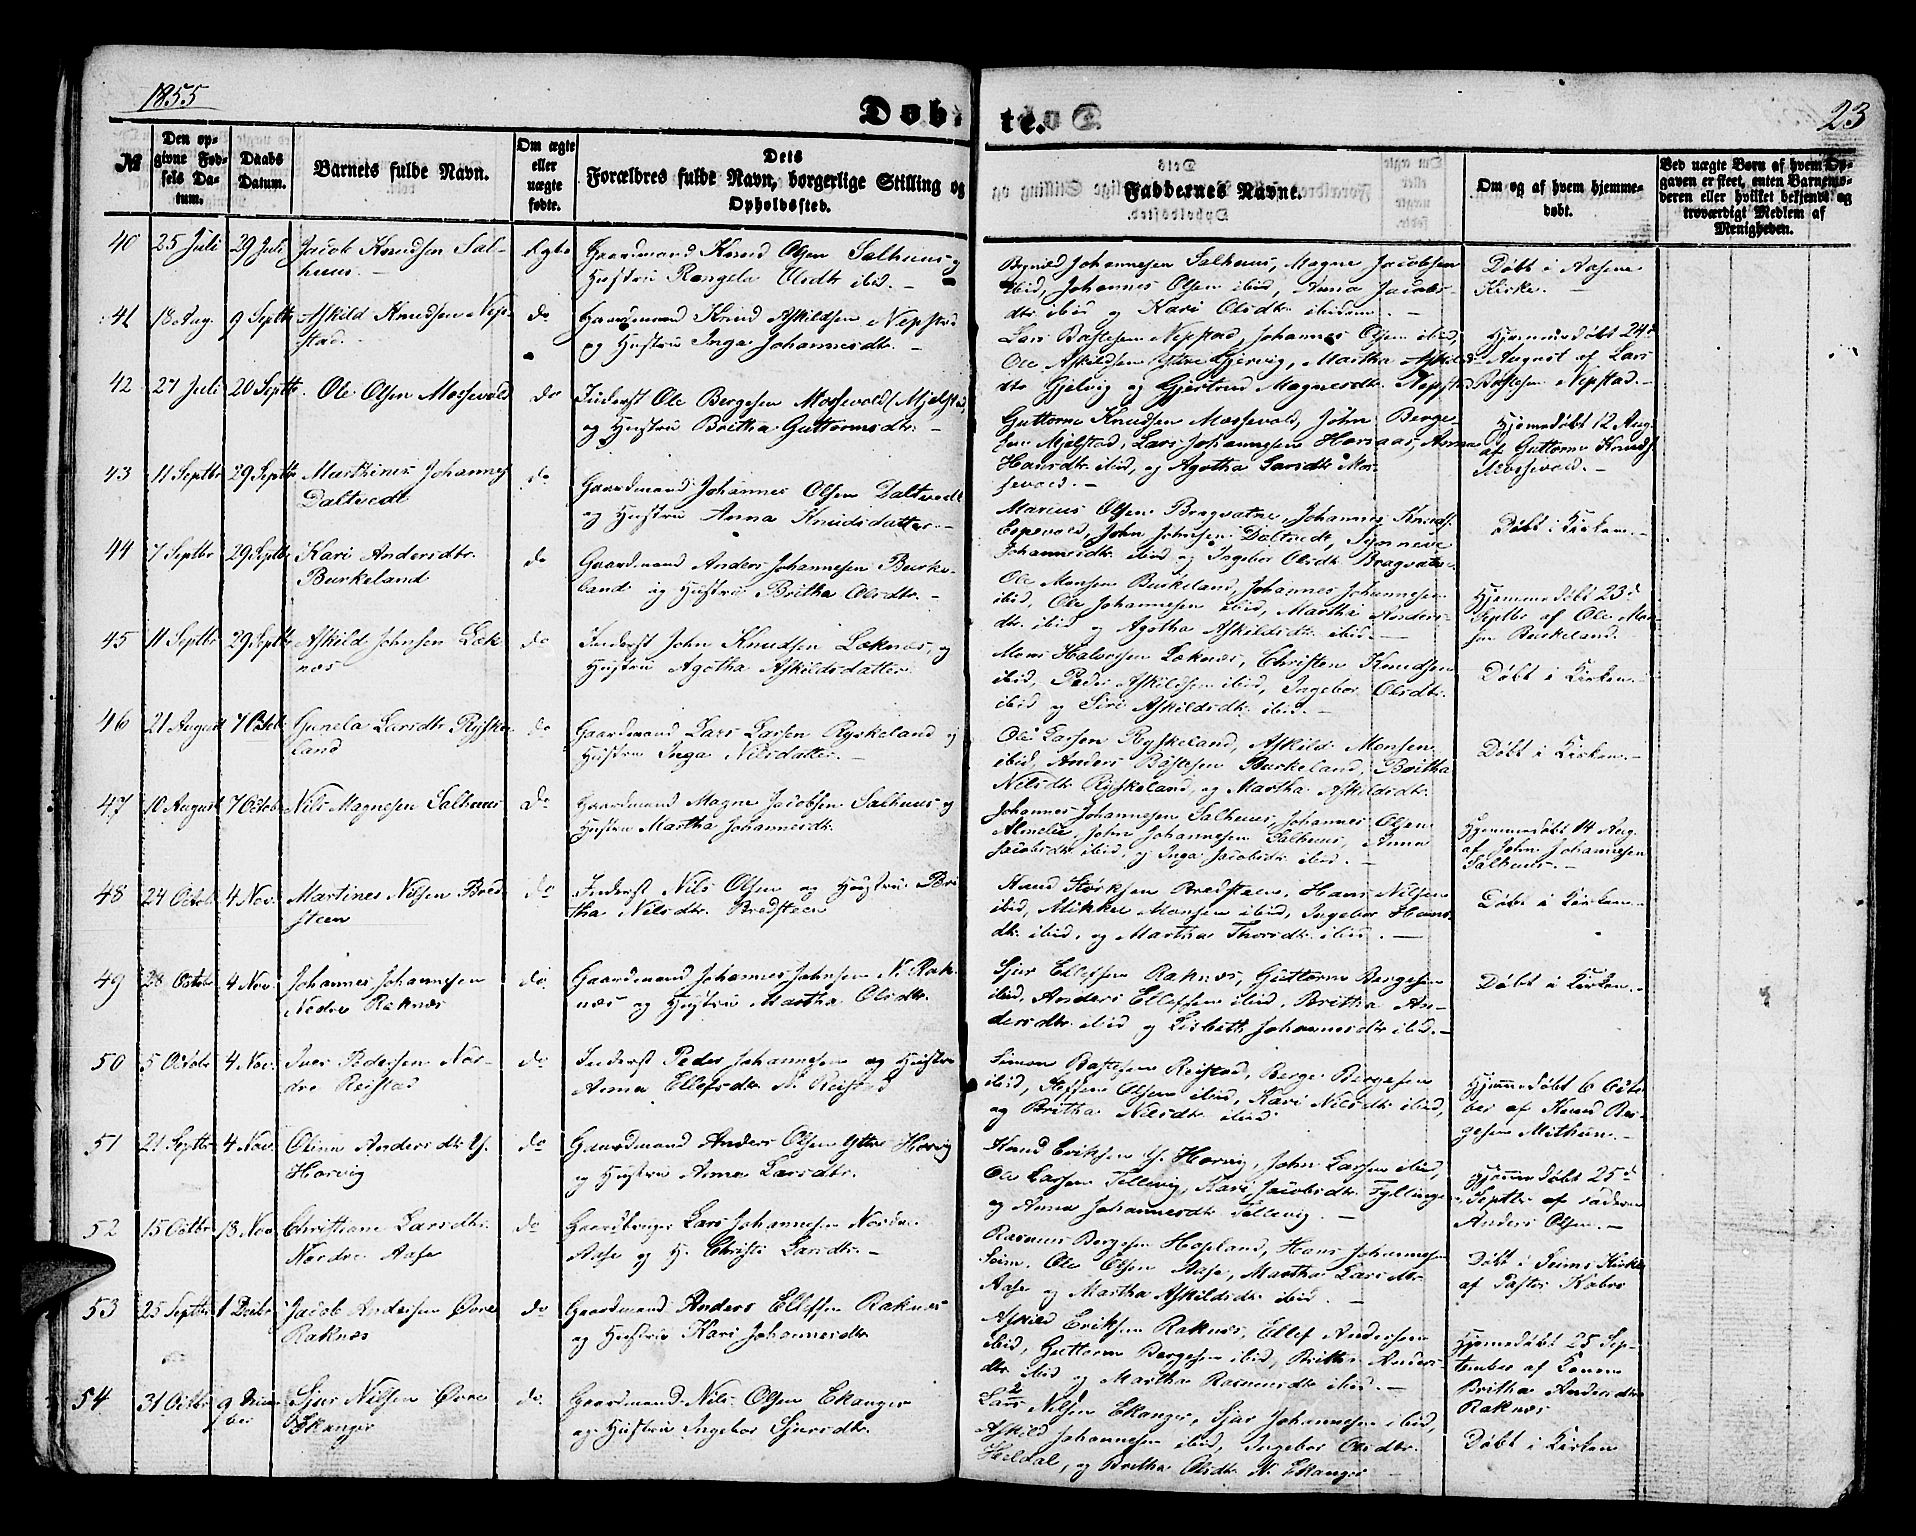 1855
Døbte.
23
№
Den opgivne Fødsels Datum.
Daabs Datum.
Barnets fulde Navn.
Om ægte eller uægte fødte.
Dets Forældres fulde Navn, borgerlige Stilling og Opholdssted.
Faddernes Navne.
Om og af hvem hjemmedøbt.
Ved uægte Børn af hvem Opgaven er skeet, enten Barnemoderen eller hvilket bekjendt og troværdigt Medlem af Menigheden.
40 25 Juli 29 Juli Jacob Knudsen Sal-
huus.
Ægte
Gaardmand Knud Olsen Salhuus og
Hustru Rangela Olsdtr ibid. —
Brynild Johannesen Salhuus, Magne Jacobsen
ibid, Johannes Olsen ibid, Anna Jacobs-
dtr ibid og Kari Olsdtr ibidem. —
Døbt i Aasene
Kirke. —
41 18 Aug. 9 Septbr Askild Knudsen Nep-
stad. —
do
Gaardmand Knud Askildsen Nepstad
og Hustru Inga Johannesdtr. —
Lars Børlesen Nepstad, Johannes Olsen ibid,
Ole Askildsen Ytre Gjervig, Martha Askilds-
dtr Gjelvig og Gjertrud Magnesdtr Nepstad
Hjemmedøbt 24d
August af Lars
Børlesen Nepstad. —
42 27 Juli 20 Septbr. Ole Olsen Mossevold
do
Inderst Ole Bergesen Mossevold (Mjelstad)
og Hustru Britha Guttormsdtr. —
Guttorm Knudsen Mossevold, John Berge-
sen Mjelstad, Lars Johannesen Horsaas, Anna
Hansdtr ibid, og Agotha Larsdtr Mos-
sevold. —
Hjemmedøbt 12 Aug.
af Guttorm Knuds.
Mossevold. —
43 11 Septbr 29 Septbr Marthines Johannes
Daltvedt
do
Gaardmand Johannes Olsen Daltvedt
og Hustru Anna Knudsdatter. —
Marius Olsen Bragvatne, Johannes Knuds.
Espevold, John Johnsen Daltvedt, Synneve
Johannesdtr ibid og Ingebor Olsdtr Bragvatn. —
Døbt i Kirken. —
44 7 Septbr 29 Septbr Kari Andersdtr.
Burkeland
do
Gaardmand Anders Johannesen Burke-
land og Hustru Britha Olsdtr. —
Ole Monsen Burkeland, Johannes Johannesen
ibid, Ole Johannesen ibid, Martha Anders-
dtr. ibid og Agotha Askildsdtr ibid. —
Hjemmedøbt 23d
Septbr af Ole Mon-
sen Burkeland.
45 11 Septbr 29 Septbr Askild Johnsen Løk-
næs
do
Inderst John Knudsen Loknæs, og
Hustru Agotha Askildsdatter.
Mons Halvorsen Loknæs, Christen Knudsen
ibid, Peder Askildsen ibid, Ingebor Olsdtr.
ibid og Siri Askildsdtr ibid. —
Døbt i Kirken. —
46 21 August 7 Octob Gunela Larsdtr Ryske-
land
do
Gaardmand Lars Larsen Ryskeland og
Hustru Inga Nilsdatter. —
Ole Larsen Ryskeland, Askild Monsen
ibid, Anders Børlesen Burkeland, Britha
Nilsdtr Ryskeland, og Martha Askildsdtr.
Døbt i Kirken. —
47 10 August 7 Octob Nils Magnesen Salhuus
Do
Gaardmand Magne Jacobsen Salhuus og
Hustru Martha Johannesdtr.
Johannes Johannesen Salhuus, Johannes Olsen
Almelie, John Johannesen Salhuus, Anna
Jacobsdtr ibid, og Inga Jacobsdtr ibid. —
Hjemmedøbt 14 Aug.
af John Johannesen
Salhuus. —
48 24 Octob 4 Nov. Martines Nilsen Bred-
steen
do
Inderst Nils Olsen og Hustru Bri-
tha Nilsdtr. Bredsteen
Knud Størksen Bredsteen, Hans Nilsen
ibid, Mikkel Monsen ibid, Ingebor Hans-
dtr. ibid, og Martha Thorsdtr. ibid. —
Døbt i Kirken. —
49 28 Octobr 4 Nov. Johannes Johannesen
Nedre Raknæs
do
Gaardmand Johannes Johnsen N. Rak-
næs og Hustru Martha Olsdtr.
Sjur Ellefsen Raknæs, Guttorm Bergesen
ibid, Anders Ellefsen ibid, Britha An-
dersdtr. ibid og Lisbeth Johannesdtr ibid. —
Døbt i Kirken. —
50 5 Octobr 4 Nov. Iver Pedersen Nor-
dre Reistad
do
Inderst Peder Johannesen og Hustru
Anna Ellefsdtr N. Reistad
Simon Børlesen Reistad, Berge Bergesen
ibid, Steffen Olsen ibid, Kari Nilsdtr ibid,
og Britha Nilsdtr ibid
Hjemmedøbt 6 Octo-
ber af Knud Ber-
gesen Mithun. —
51 21 Septbr 4 Nov. Olina Andersdtr Y.
Horvig
do
Gaardmand Anders Olsen Ytre Horvig
og Hustru Anna Larsdtr.
Knud Eriksen Y. Horvig, John Larsen ibid,
Ole Larsen Tellevig, Kari Jacobsdtr. Fyllingen
og Anna Johannesdtr Tellevig. —
Hjemmedøbt 25d
Septbr af Faderen
Anders Olsen. —
52 15 Octbr 18 Nov. Christiane Larsdtr.
Nordre Aase
do
Gaardbruger Lars Johannesen Nordre
Aase og H. Christi Larsdtr. —
Rasmus Bergesen Hopland, Hans Johannesen
Seim, Ole Olsen Aase, Martha Larsdtr.
Aase og Martha Askildsdtr ibid. —
Døbt i Seims Kirke
af Pastor Kobro
53 25 Septbr 1 Decbr Jacob Andersen Øvre
Raknæs
do
Gaardmand Anders Ellefsen Raknæs
og Hustru Kari Johannesdtr
Askild Eriksen Raknæs, Ellef Andersen
ibid, Guttorm Bergesen ibid, Britha Anders-
dtr ibid og Martha Rasmusdtr ibid. —
Hjemmedøbt 25 Sep-
tember af Konen
Britha Andersdtr
Raknæs
54 31 Octbr 9 Decem-
ber
Sjur Nilsen Øvre
Ekanger
do.
Gaardmand Nils Olsen Ekanger
og Hustru Ingebor Sjursdtr.
Lars Nilsen Ekanger, Sjur Johannesen ibid,
Askild Johannesen ibid, Ingebor Olsdtr.
Heldal, og Britha Olsdtr N. Ekanger
Døbt i Kirken